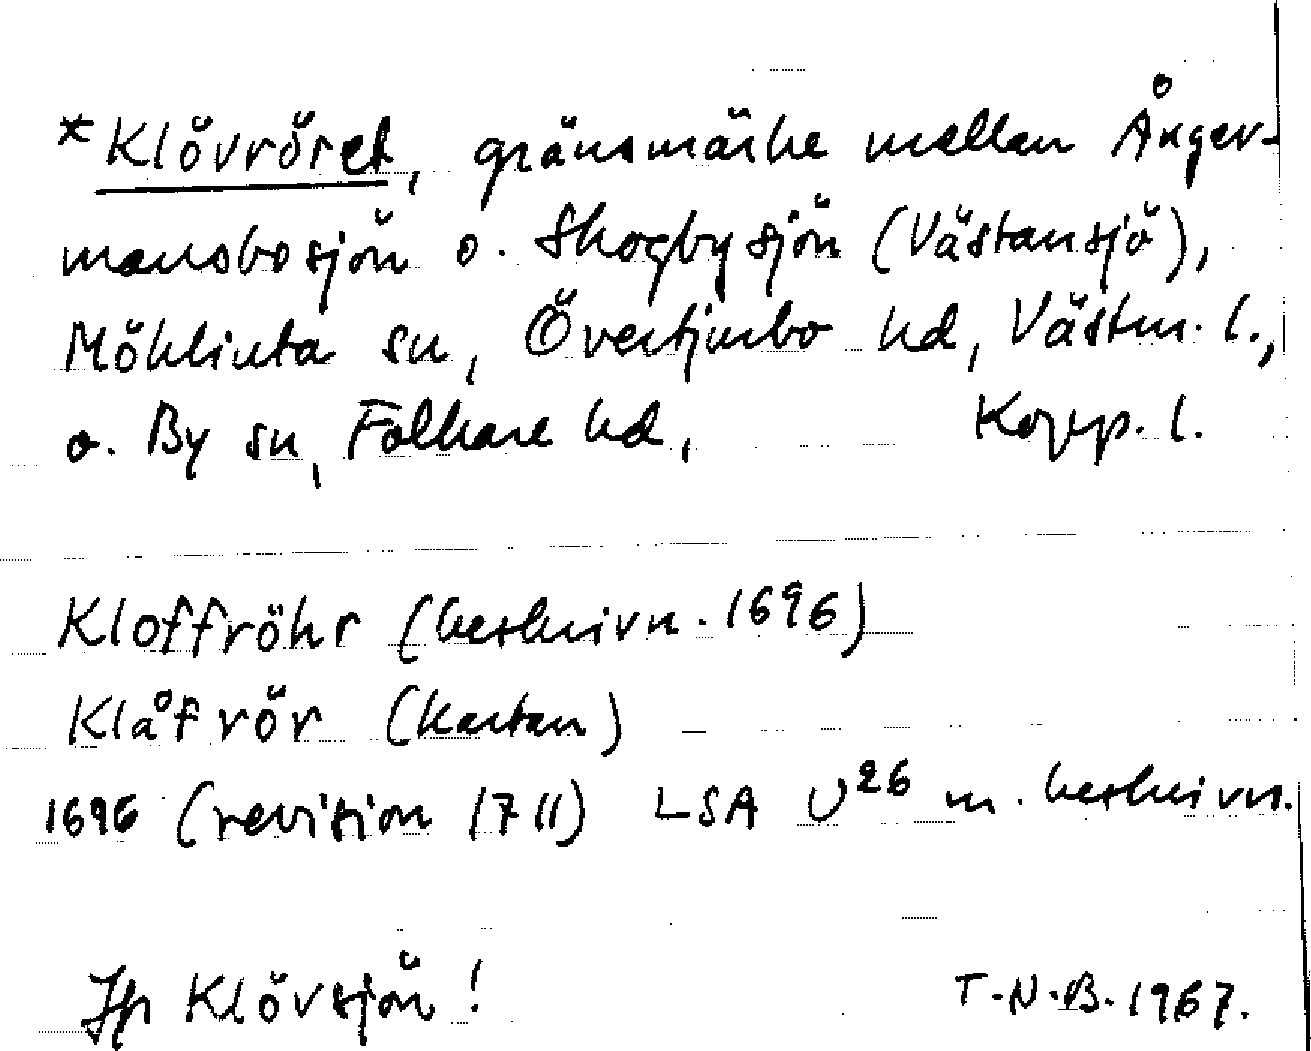 *Klövröret, gränsmärke mellan Ånger-
mansbosjön o. Skogbysjön (Västansjö),
Möklinta sn, Övertjurbo hd, Västm. l.,
o. By sn, Folkare hd, Kopp. l.
Kloffröhr (beskrivn. 1696)
Klåf rör (kartan)
1696 (revision 1711) LSA U26 m. beskrivn.
Jfr Klövsjön!
T.N.B. 1967.